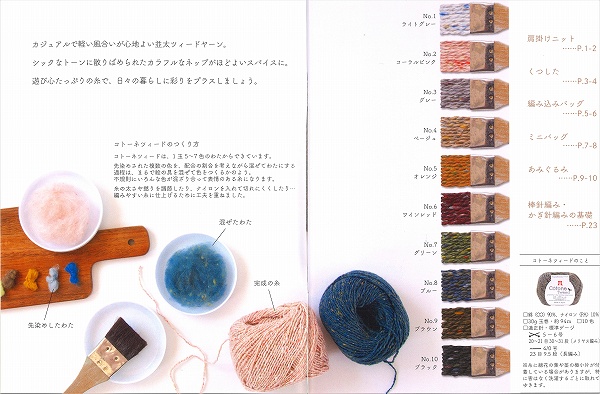 カジュアルで軽い風合いが心地よい並太ツィードヤーン。
シックなトーンに散りばめられたカラフルなネップがほどよいスパイスに。
遊び心たっぷりの糸で、日々の暮らしに彩りをプラスしましょう。
コトーネツィードのつくり方
コトーネツィードは、1玉5~7色のわたからできています。
先染めされた複数の色を、配合の割合を考えながら混ぜてわたにする
過程は、まるで絵の具を混ぜて色をつくるかのよう。
不規則にいろんな色が混ざり合って表情のある糸になります。
糸の太さや撚りを調節したり、ナイロンを入れて切れにくくしたり…
編みやすい糸に仕上げるために工夫を重ねました。
混ぜたわた
完成の糸
先染めしたわた
No.1
ライトグレー
No.2
コーラルピンク
No.3
グレー
No.4
ベージュ
No.5
オレンジ
No.6
ワインレッド
No.7
グリーン
No.8
ブルー
No.9
ブラウン
No.10
ブラック
肩掛けニット
……P.1-2
くつした
……P.3-4
編み込みバッグ
……P.5-6
ミニバッグ
……P.7-8
あみぐるみ
……P.9-10
棒針編み・
かぎ針編みの基礎
……P.23
コトーネツィードのこと
Cotone
□綿 (CO) 90%、ナイロン (PA) 10%
□30g玉巻・約94m □10色
□適正針・標準ゲージ
5~6号
20~21目 30~31段 (メリヤス編み)
6/0号
23目 9.5段 (長編み)